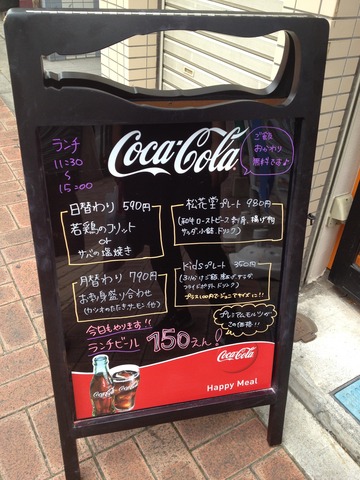 Coca-Cola
ランチ
11:30
～
15:00
ご飯
おかわり
無料ですよ
日替わり 590円
若鶏のフリット
or
サバの塩焼き
松花堂プレート 980円
(和牛ローストビーフ, 刺身, 揚げ物
サラダ, 小鉢, ドリンク)
月替わり 790円
お刺身盛り合わせ
(カツオのたたき, サーモン, 他)
Kidsプレート 350円
フライドポテト, ドリンク)
プラス100円でジュニアサイズに!!
今日もやります!!
ランチビール 150えん!
プレミアムモルツが
この価格!!
Coca-Cola
Happy Meal